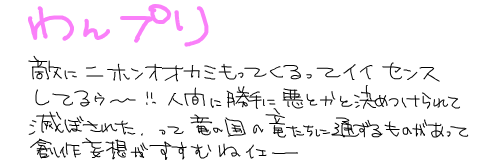 わんプリ
敵にニホンオオカミもってくるってイイ センス
してるゥ〜!! 人間に勝手に悪とかと決めつけられて
滅ぼされた、って 竜の国の竜たちに通ずるものがあって
創作妄想がすすむねイェー